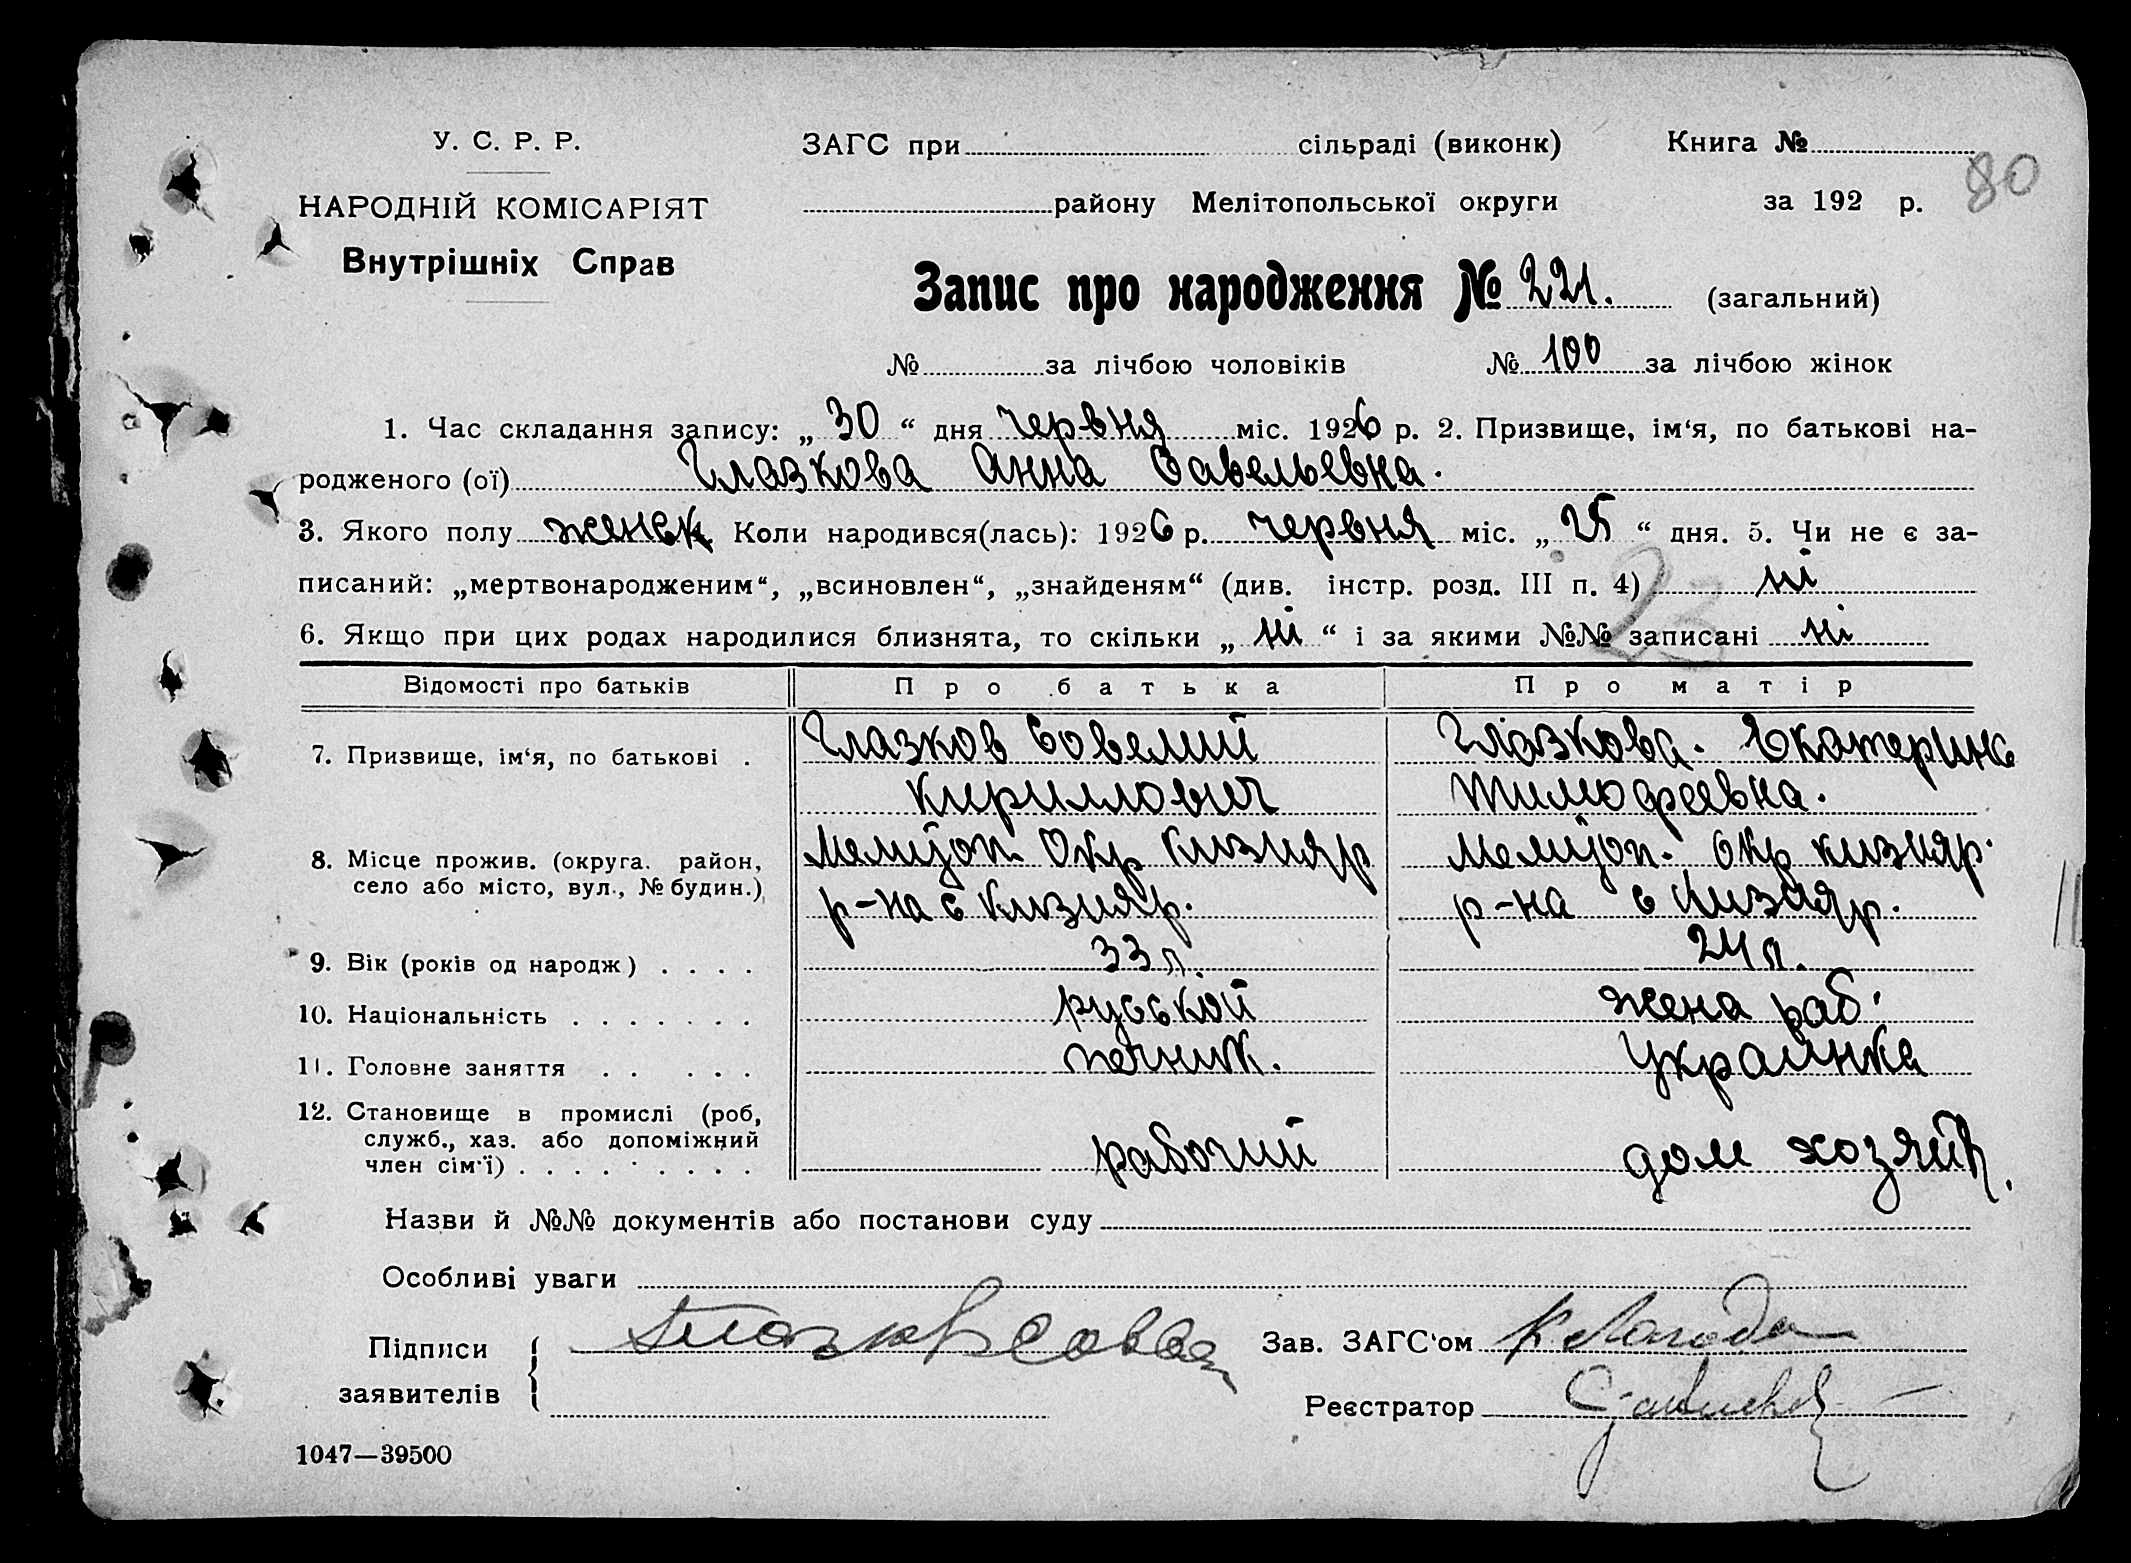 У. С. Р. Р.
НАРОДНІЙ КОМІСАРІЯТ
Внутрішніх Справ
ЗАГС при сільраді (виконк) Книга №
району Мелітопольської округи за 192 р.
80
Запис про народження № 221. (загальний)
№ за лічбою чоловіків № 100 за лічбою жінок
1. Час складання запису: „ 30 “ дня червня міс. 1926 р. 2. Призвище, ім‘я, по батькові на-
родженого (ої) Глазкова Анна Савельевна.
3. Якого полу женск Коли народився(лась): 1926 р. червня міс. „ 25 “ дня. 5. Чи не є за-
писаний: „мертвонародженим“, „всиновлен“, „знайденям“ (див. інстр. розд. III п. 4) ні
23
6. Якщо при цих родах народилися близнята, то скільки „ ні “ і за якими №№ записані ні
Відомості про батьків Про батька Про матір
7. Призвище, ім‘я, по батькові . Глазков Совелий Глазкова. Екатерина
Кириллович Тимофеевна.
8. Місце прожив. (округа. район, Меліт̄оп. Окр Кизияр Меліт̄оп. Окр Кизияр.
село або місто, вул., № будин.) р-на с Кизияр. р-на с Кизияр.
9. Вік (років од народж) . . . . 33 л. 24 л.
10. Національність . . . . . . . русский жена раб.
11. Головне заняття . . . . . печник. Украинка
12. Становище в промислі (роб,
служб., хаз. або допоміжний
член сім‘ї) . . . . . . . . . рабочий дом хозяйк.
Назви й №№ документів або постанови суду
Особливі уваги
Підписи Глазков Зав. ЗАГС‘ом
заявителів Реєстратор
1047—39500